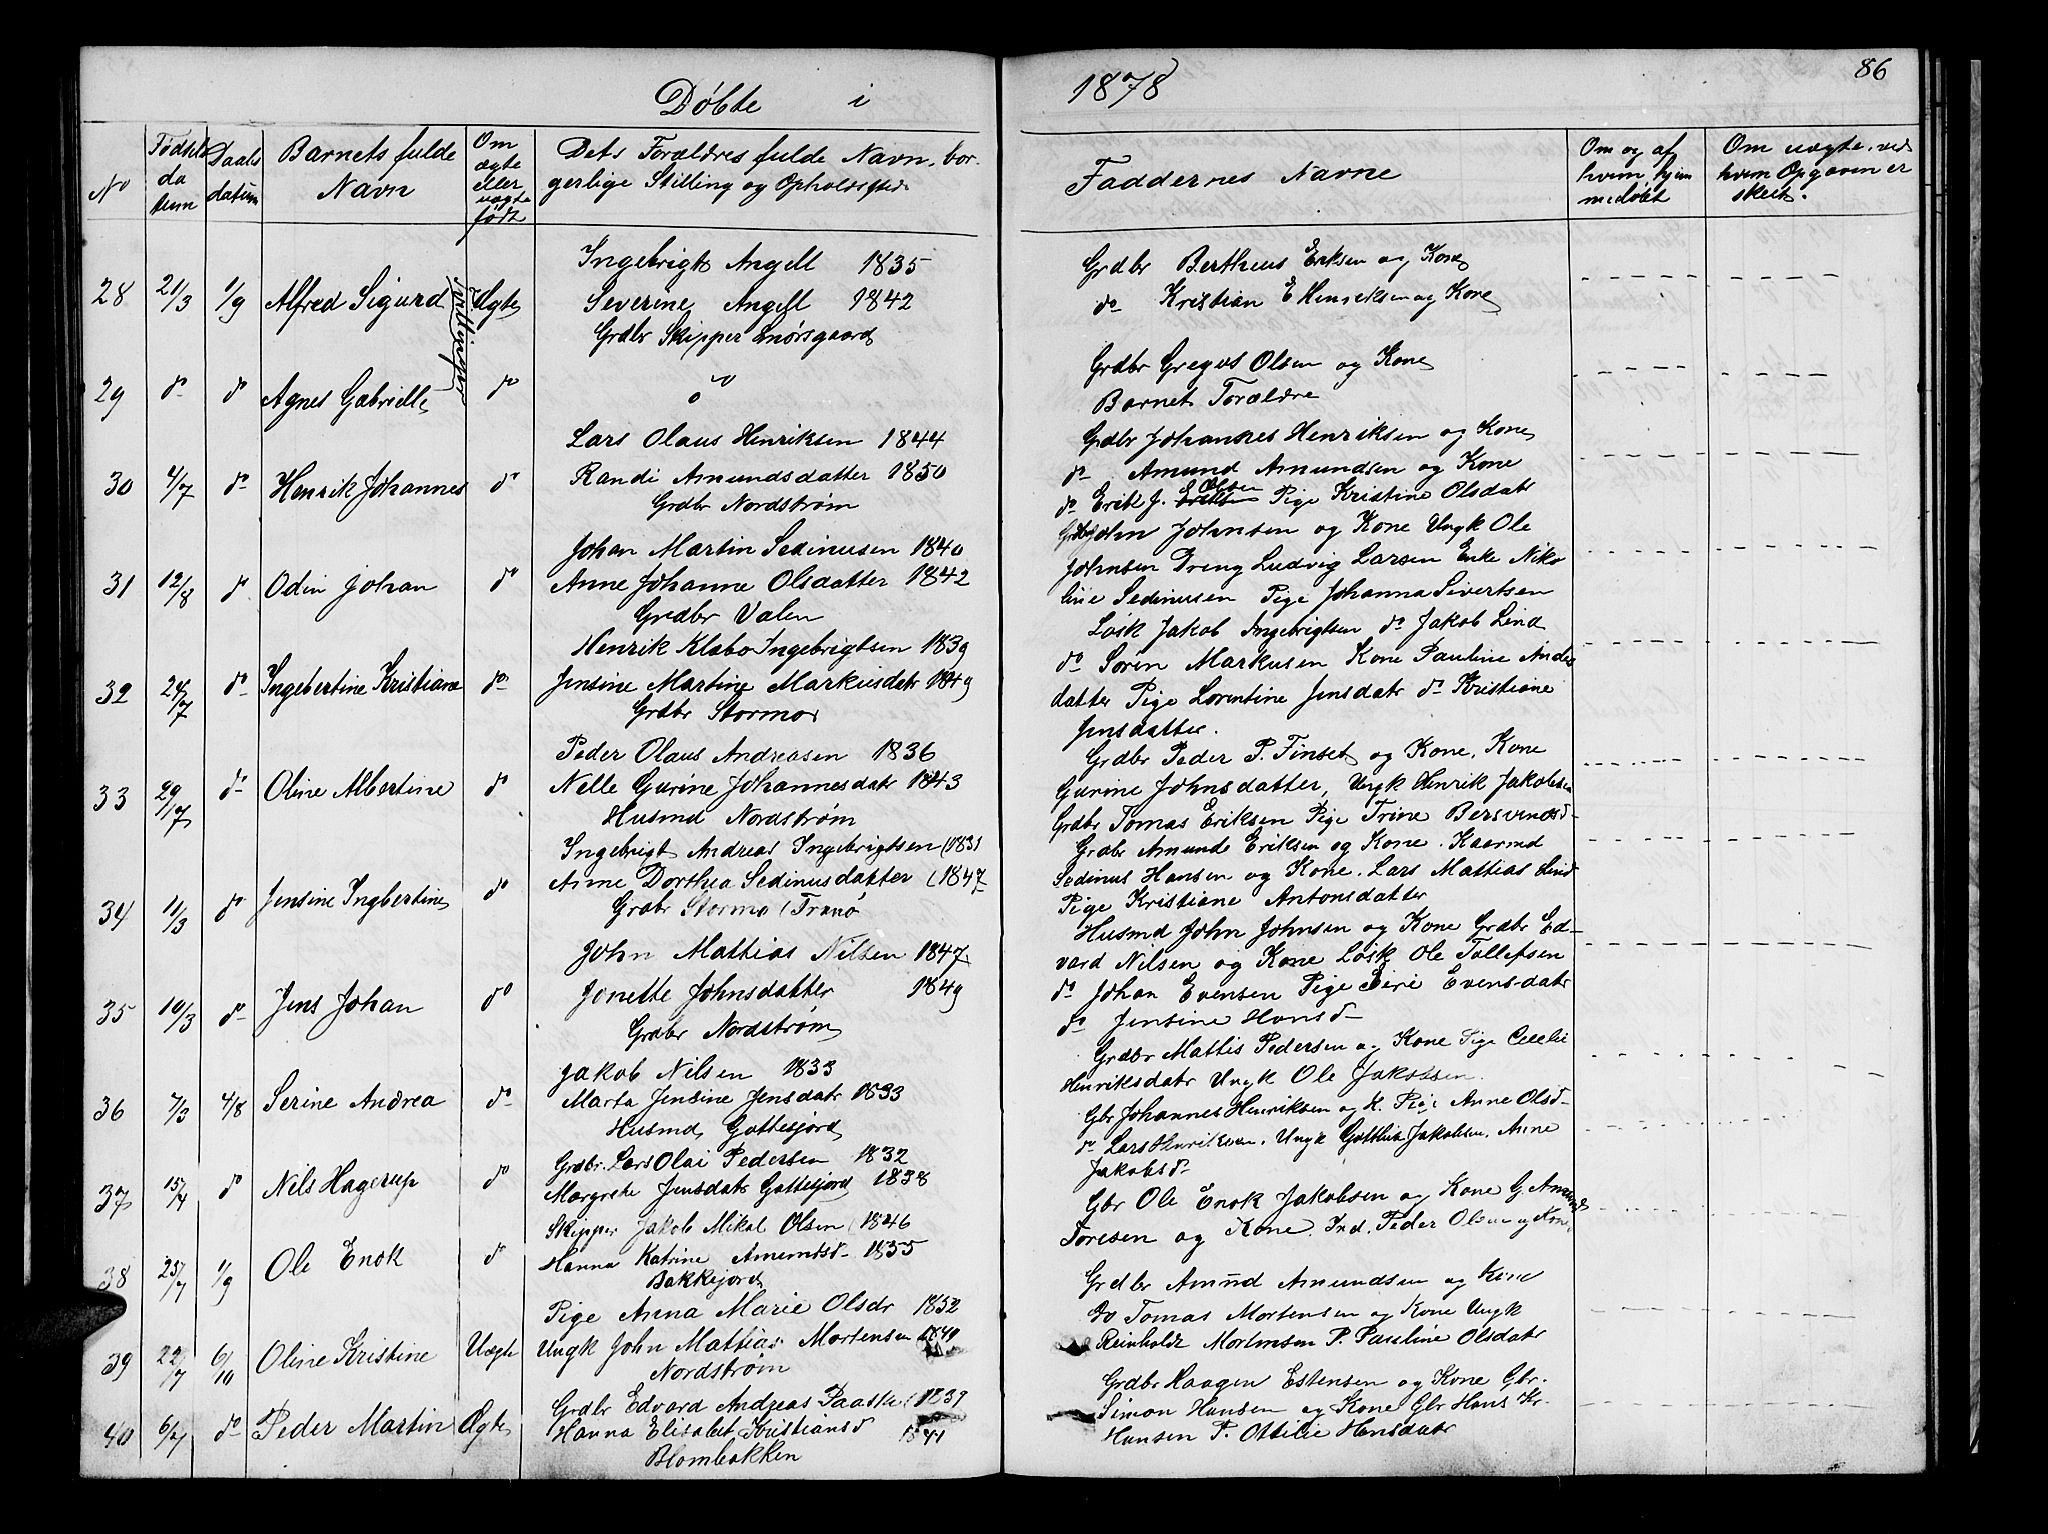 Døbte i
1878
86
No
Fødsels
da
tum
Daabs
datum
Barnets fulde
Navn
Om
ægte
eller
uægte
født
Dets Forældres fulde Navn, bor-
gerlige Stilling og Opholdssted
Faddernes Navne
Om og af
hvem hjem
medøbt
Om uægte, ved
hvem Opgaven er
skeet.
28 21/3 1/9 Alfred Sigurd Ægte
Tvillinger
Ingebrigt Angell 1835
Severine Angell 1842
Grdbr Skipper
Grdbr Bertheus Eriksen og Kone
do Kristian E Henriksen og Kone
29 do do Agnes Gabrielle do
Grdbr Gregus Olsen og Kone
Barnets Forældre
30 4/7 do Henrik Johannes do
Lars Olaus Henriksen 1844
Randi Amundsdatter 1850
Grdbr Nordstrøm
Grdbr Johannes Henriksen og Kone
do Amund Amundsen og Kone
do Erik J. Olsen Pige Kristine Olsdatr
31 12/8 do Odin Johan do
Johan Martin Sedinusen 1840
Anne Johanne Olsdatter 1842
Grdbr Valen
Grdbr John Johnsen og Kone Ungk Ole
Johnsen Dreng Ludvig Larsen Enke Niko
line Sedinusen Pige Johanna Sivertsen
32 24/7 do Ingebertine Kristiane do
Henrik Klabo Ingebrigtsen 1839
Jensine Martine Markusdatr 1849
Grdbr Stormo
Løsk Jakob Ingebrigtsen do Jakob Lind
do Sören Markusen Kone Pauline Anders
datter Pige Lorentine Jensdatr do Kristiane
Jensdatter.
33 29/7 do Oline Albertine do
Peder Olaus Andreasen 1836
Nelle Gurine Johannesdatr 1843
Husmd Nordstrøm
Grdbr Peder P. Finset og Kone, Kone
Gurine Johnsdatter, Ungk Henrik Jakobsen
Grdbr Tomas Eriksen Pige Trine Bersvendsd-
34 11/3 do Jensine Ingbertine do
Ingebrigt Andreas Ingebrigtsen (1831
Anne Dorthea Sedinusdatter (1847
Grdbr Stormo (Tranø
Grdbr Amund Eriksen og Kone. Kaarmd
Sedinus Hansen og Kone. Lars Mattias Lind
Pige Kristiane Antonsdatter
35 10/3 do Jens Johan do
John Mattias Nilsen 1847
Jonette Johnsdatter 1849
Grdbr Nordstrøm
Husmd John Johnsen og Kone Grdbr Ed-
vard Nilsen og Kone Løsk Ole Tollefsen
do Johan Evensen Pige Siri Evens-datr
do Jensine Hansd-
36 7/3 4/8 Serine Andrea do
Jakob Nilsen 1833
Marta Jensine Jensdatr 1833
Husmd Gottesjord
Grdbr Mattis Pedersen og Kone Pige Cecelie
Henriksdatr Ungk Ole Jakobsen.
37 15/4 do Nils Hagerup do
Grdbr. Lars Olai Pedersen 1832
Margrete Jensdatr Gottesjord 1838
Gbr Johannes Henriksen og K. Pige Anne Olsd-
do Lars Henriksen. Ungk Gottlieb Jakobsen. Anne
Jakobsd-
38 25/7 1/9 Ole Enok do
Skipper Jakob Mikal Olsen (1846
Hanna Katrine Amundsd- 1855
Bakkejord
Gbr Ole Enok Jakobsen og Kone G. Amund
Toresen og Kone. Ind. Peder Olsen og Kone
39 22/7 6/10 Oline Kristine Uægte
Pige Anna Marie Olsdr 1852
Ungk John Mattias Mortensen 1849
Nordstrøm
Grdbr Amund Amundsen og Kone
do Tomas Mortensen og Kone Ungk
Reinholdt Mortensen P. Pauline Olsdatr
40 6/7 do Peder Martin Ægte
Grdbr Edvard Andreas Paaske (1839
Hanna Elisabet Kristiansd 1841
Blombakken
Grdbr Haagen Estensen og Kone Gbr.
Simon Hansen og Kone Gbr Hans Kr.
Hansen P. Ottilie Hansdatr